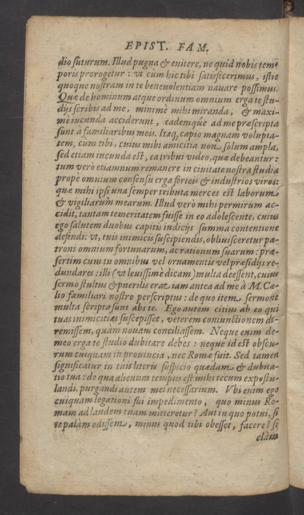 EPIST. FAM.
dio futurum. Illud pugna & enitere, ne quid nobis tem-
poris prorogetur: vt cum hic tibi satisfecerimus, istic
quoque nostram in te beneuolentiam nauare possimus.
Quæ de hominum atque ordinum omnium erga te stu-
dijs scribis ad me, minimè mihi miranda, & maxi-
mè iucunda acciderunt, eademque ad me præscripta
sunt à familiaribus meis. Itaq; capio magnam volupta-
tem, cum tibi, cuius mihi amicitia non solum ampla,
sed etiam iucunda est, ea tribui video, quæ debeantur:
tum verò etiamnum remanere in ciuitate nostra studia
prope omnium consensu erga fortes & industrios viros:
quæ mihi ipsi vna semper tributa merces est laborum
& vigiliarum mearum. Illud verò mihi permirum ac-
cidit, tantam temeritatem fuisse in eo adolescente, cuius
ego salutem duobus capitis iudicijs summa contentione
defendi: vt, tuis inimicitijs suscipiendis, obliuisceretur pa-
troni omnium fortunarum, ac rationum suarum: præ-
sertim cum tu omnibus vel ornamentis vel præsidijs re-
dundares: illi (vt leuissimè dicam) multa deessent, cuius
sermo stultus & puerilis erat iam antea ad me à M. Cæ-
lio familiari nostro perscriptus: de quo item sermone
multa scripta sunt abs te. Ego autem citius ab eo qui
tuas inimicitias suscepisset, veterem coniunctionem di-
remissem, quàm nouam conciliassem. Neque enim de-
meo erga te studio dubitare debes: neque id est obscu-
rum cuiquam in prouincia, nec Romæ fuit. Sed tamen
significatur in tuis literis suspicio quædam & dubita-
tio tua: de qua alienum tempus est mihi tecum expostu-
landi, purgandi autem mei necessarium. Vbi enim ego
cuiquam legationi fui impedimento, quo minus Ro-
mam ad laudem tuam mitteretur? Aut in quo potui, si
te palàm odissem, minus quod tibi obesset, facere? si
clàm